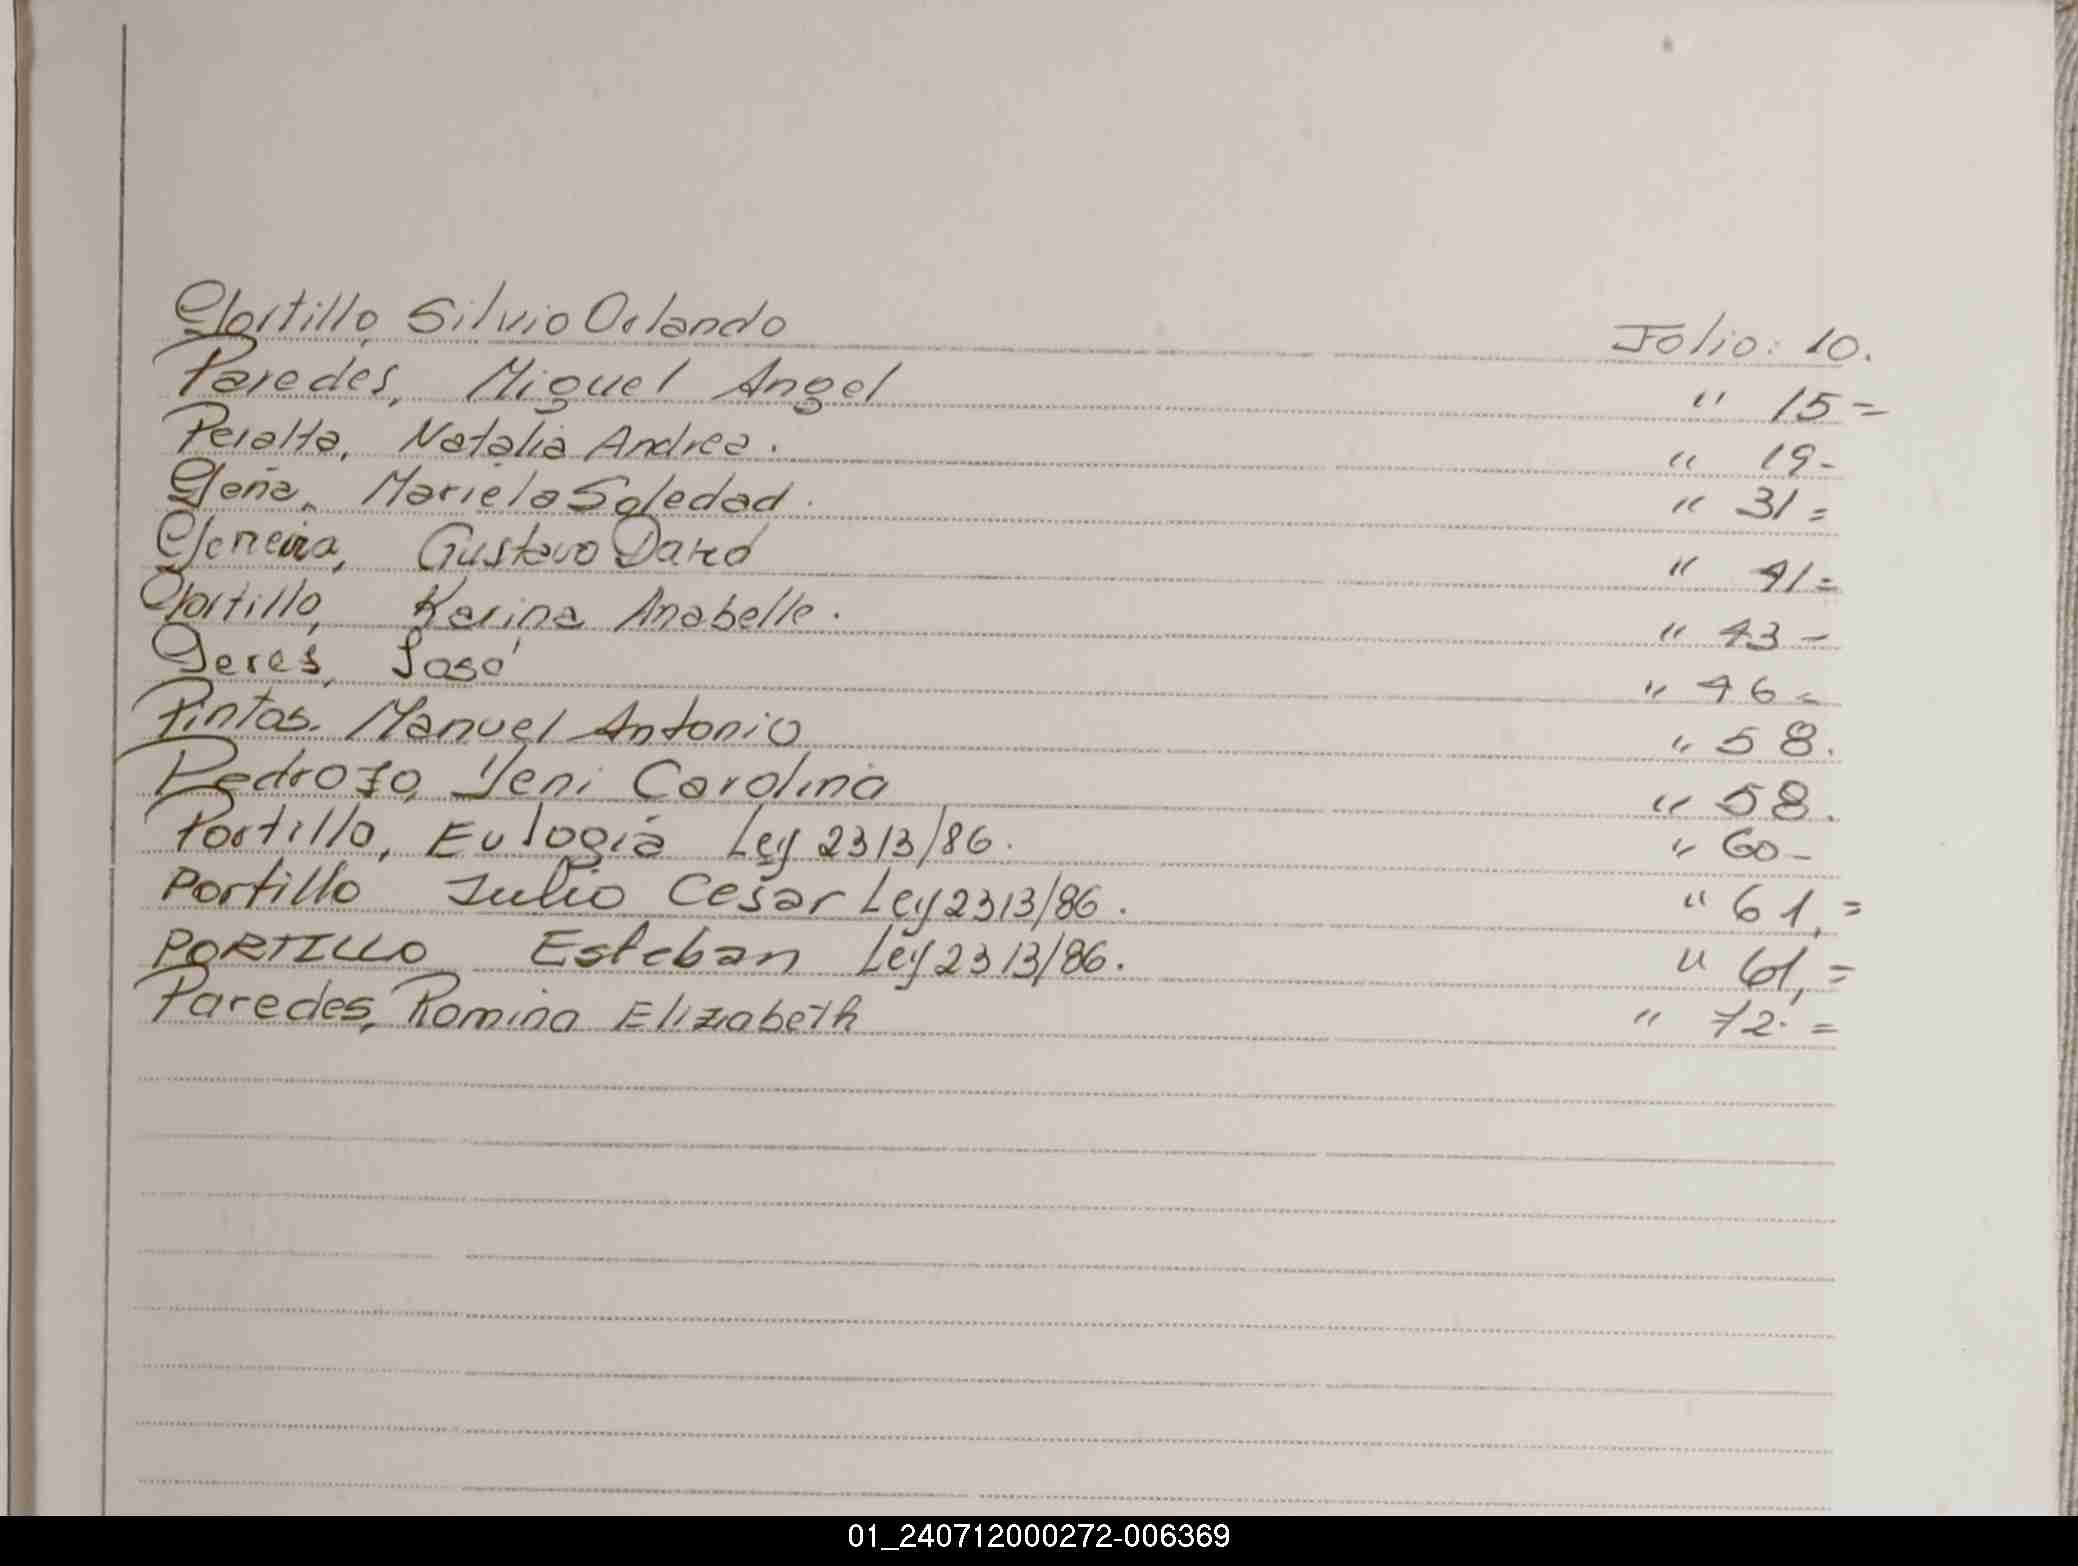 Portillo, Silvio Orlando Folio: 10.
Paredes, Miguel Angel " 15=
Peralta, Natalia Andrea. " 19-
Peña, Mariela Soledad. " 31=
Pereira, Gustavo Darío " 41=
Portillo, Karina Anabelle. " 43-
Peres, José " 46-
Pintos. Manuel Antonio " 58.
Pedrozo, Yeni Carolina " 58.
Portillo, Eulogia Ley 2313/86. " 60-
Portillo Julio Cesar Ley 2313/86. " 61,=
PORTILLO Esteban Ley 2313/86. " 61,=
Paredes, Romina Elizabeth " 72.=
01_240712000272-006369